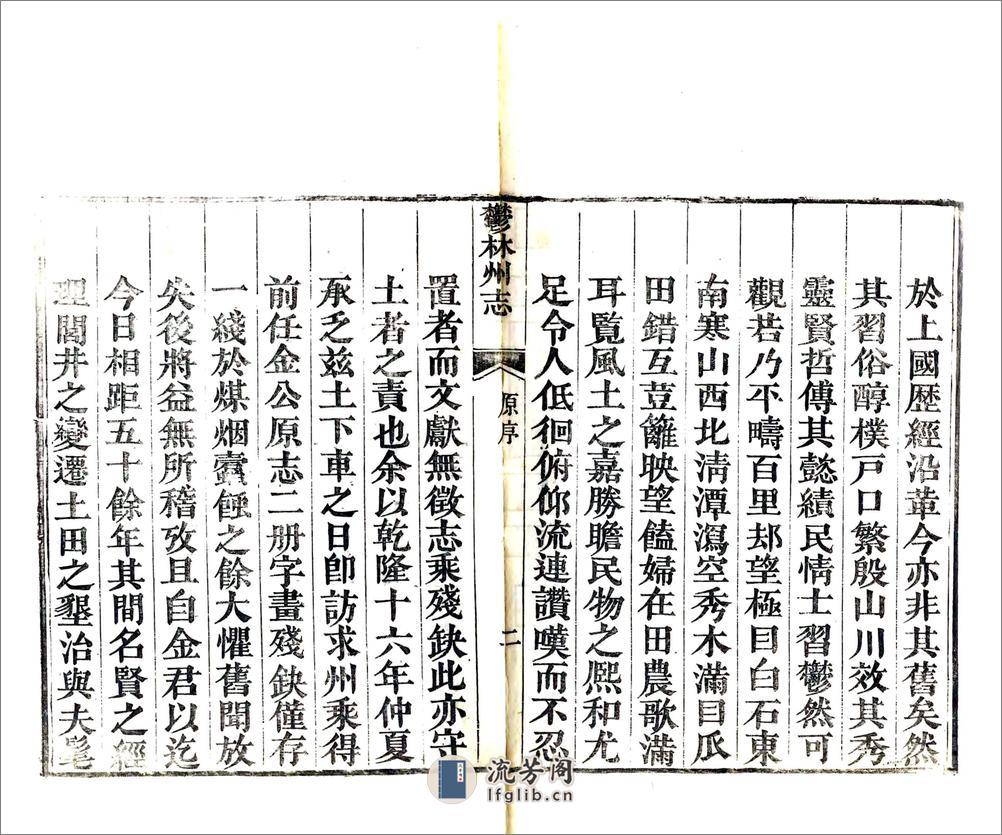 於上國歷經沿革今亦非其舊矣然
其習俗醇樸戸口繁殷山川效其秀
靈賢哲傳其懿績民情士習鬱然可
觀若乃平疇百里却望極目白石東
南寒山西北清潭瀉空秀木滿目瓜
田錯互荳籬映望饁婦在田農歌滿
耳覧風土之嘉勝瞻民物之熈和尤
足令人低徊俯仰流連讚嘆而不忍
鬱林州志
原序
二
置者而文獻無徵志乘殘缺此亦守
土者之責也余以乾隆十六年仲夏
承乏兹土下車之日卽訪求州乘得
前任金公原志二册字畫殘缺僅存
一綫於煤烟蠧蝕之餘大懼舊聞放
失後將益無所稽攷且自金君以迄
今日相距五十餘年其間名賢之經
理閭井之變遷土田之墾治與夫髦
流芳阁
lfglib.cn